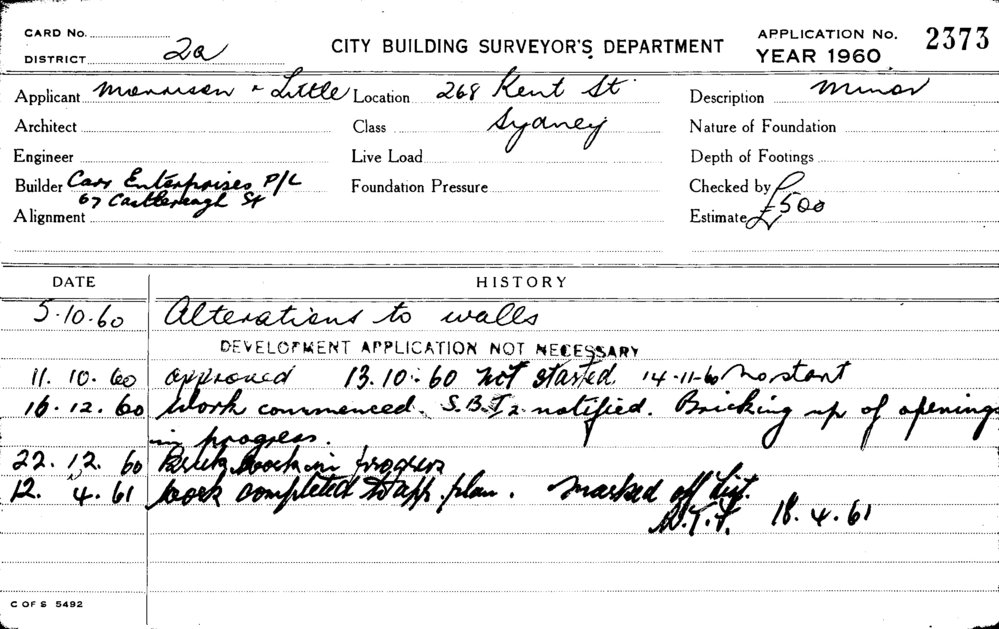 CARD No.
DISTRICT 2a
CITY BUILDING SURVEYOR'S DEPARTMENT
APPLICATION No. 2373
YEAR 1960
Applicant Morrison & Little Location 268 Kent St Description Minor
Architect Class Sydney Nature of Foundation
Engineer Live Load Depth of Footings
Builder Carr Enterprises P/L Foundation Pressure Checked by
67 Castlereagh St
Alignment Estimate £500
DATE HISTORY
5.10.60 Alterations to walls
DEVELOPMENT APPLICATION NOT NECESSARY
11.10.60 approved 13.10.60 Not started. 14-11-60 No start
16.12.60 Work commenced. S.B.I2 notified. Bricking up of openings
in progress.
22.12.60 Brick work in progress
12.4.61 Work completed to app. plan. Marked off List.
18.4.61
C OF S 5492